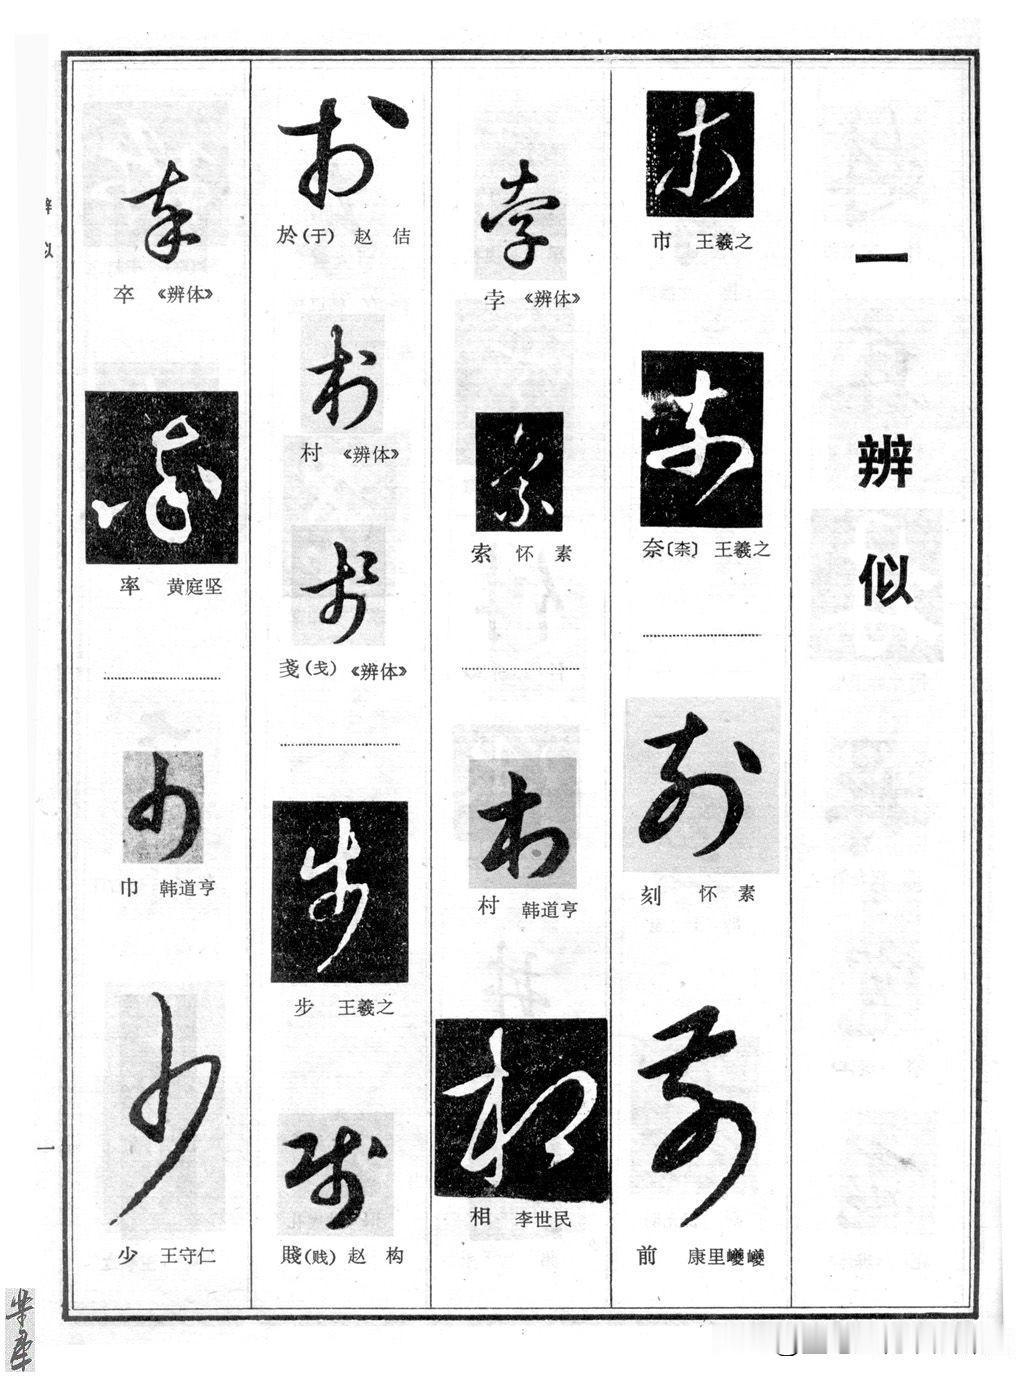 一 辨似
市 王羲之
奈〔柰〕 王羲之
刻 怀素
前 康里巎巎
孛 《辨体》
索 怀素
村 韩道亨
相 李世民
於(于) 赵佶
村 《辨体》
戔(戋) 《辨体》
步 王羲之
賤(贱) 赵构
卒 《辨体》
率 黄庭坚
巾 韩道亨
少 王守仁
辨似
一